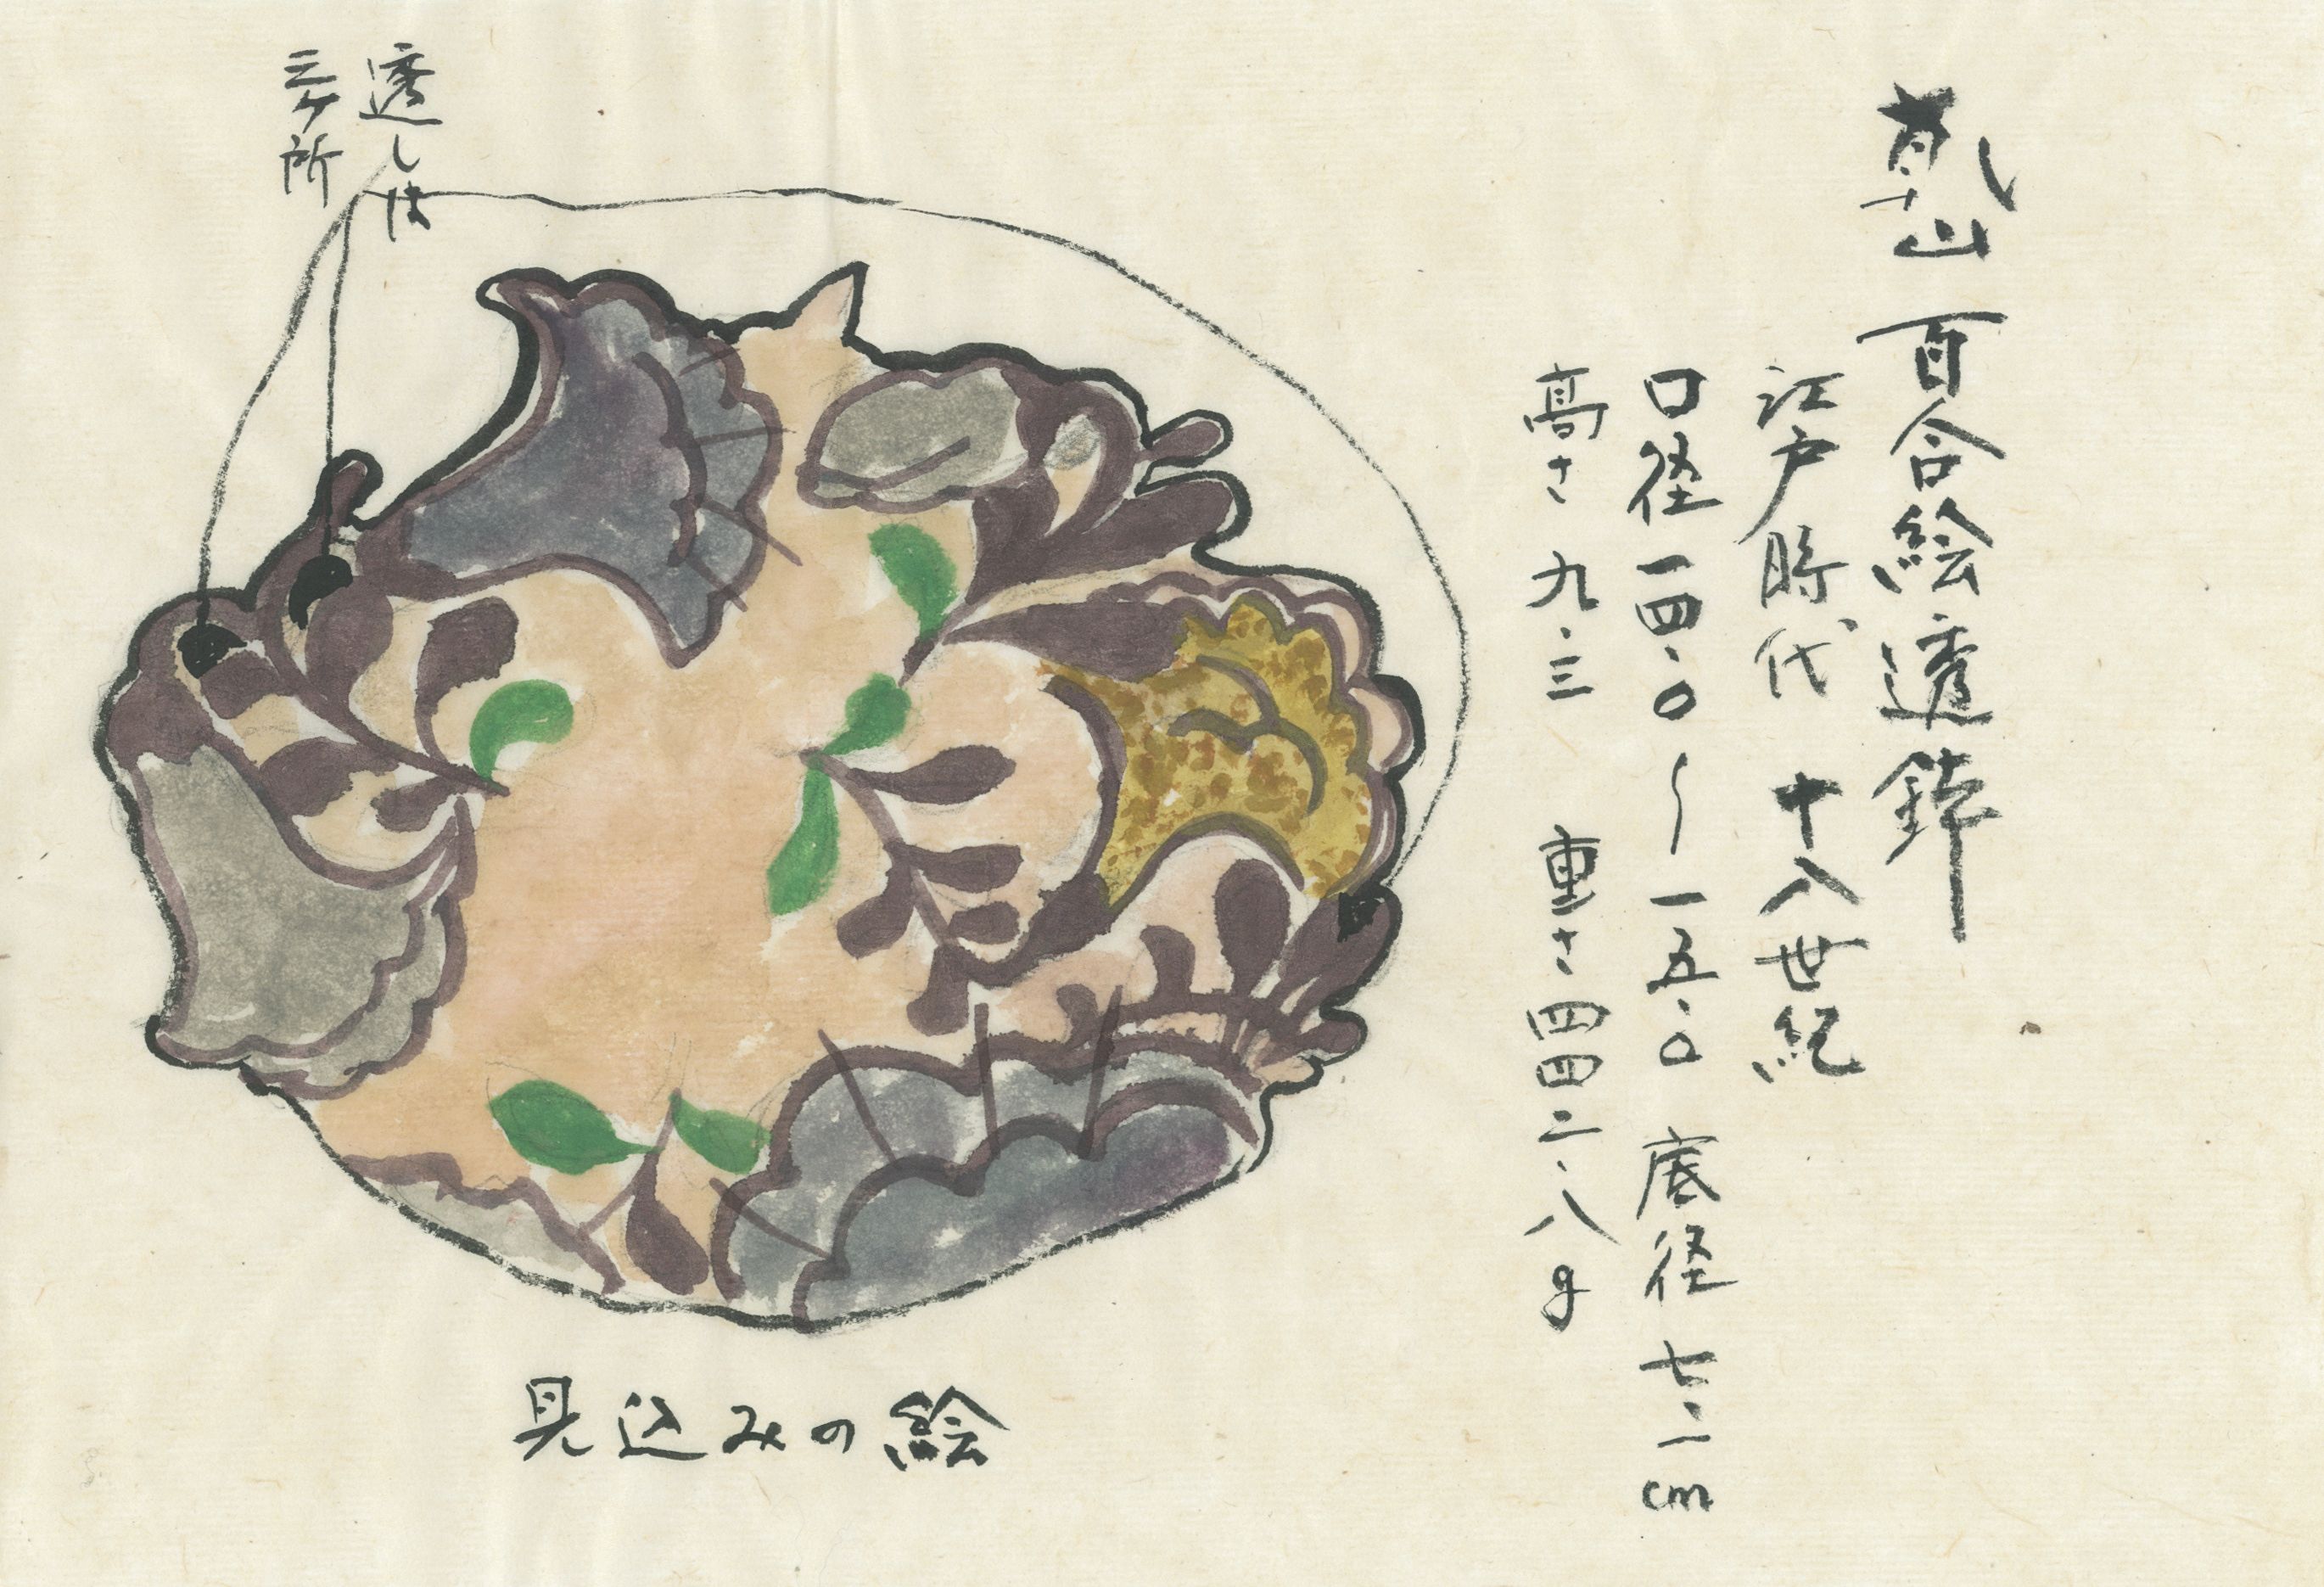 乾山 百合絵透鉢
江戸時代 十八世紀
口径 一四・〇〜一五・〇 底径 七・二cm
高さ 九・三 重さ 四四二・八g
透しは
三ケ所
見込みの絵